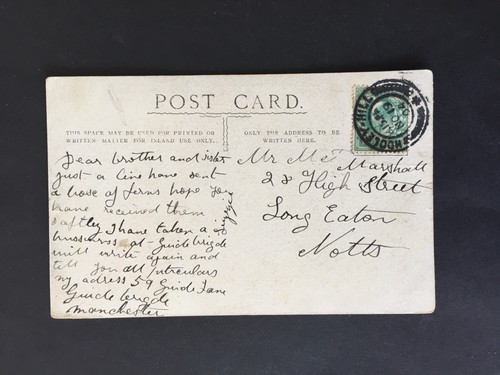 POST CARD.
THIS SPACE MAY BE USED FOR PRINTED OR
WRITTEN MATTER FOR INLAND USE ONLY.
ONLY THE ADDRESS TO BE
WRITTEN HERE.
Dear brother and sister
Just a line have sent
a boxe of ferns hope you
have received them
saftly I have taken a
bussness at Guidebrigde
will write again and
tell you all
my adress 59 Guide Lane
Guide brigde
Manchester
Mr Marshall
28 High Street
Long Eaton
Notts